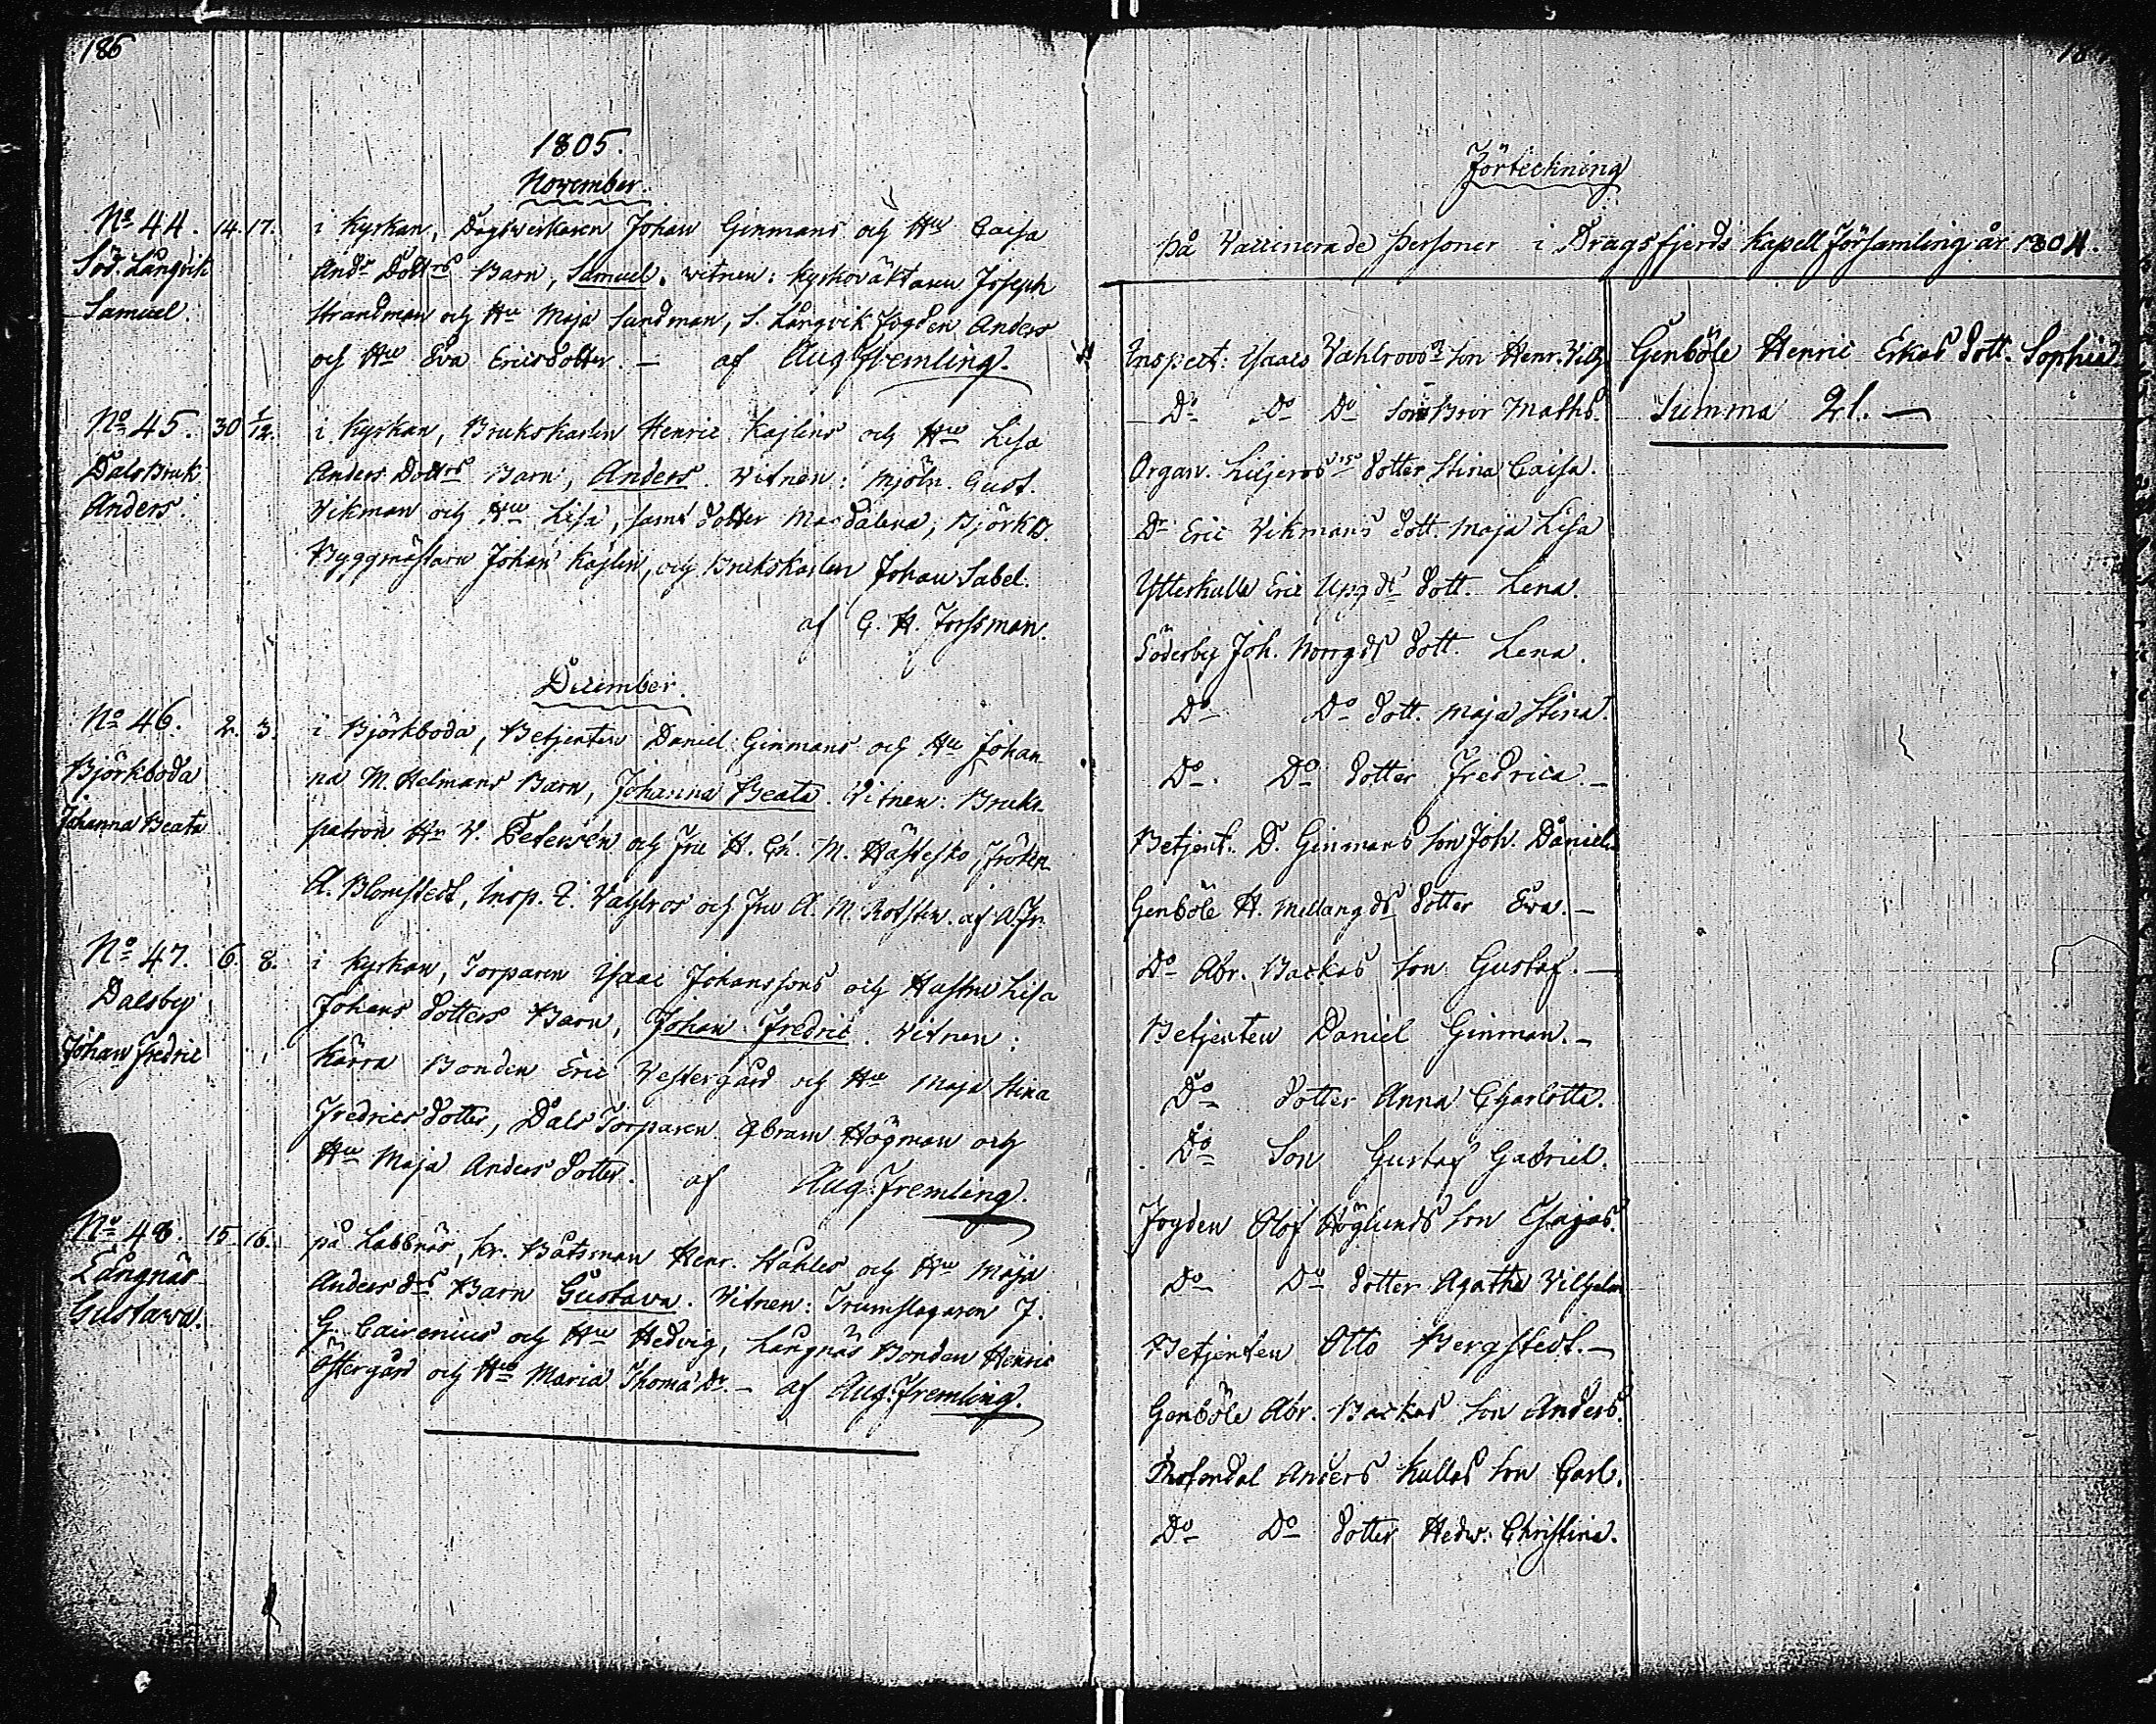 186
1805.
November.
No 44. 14. 17. i Kyrkan, Dagsverkaren Johan Ginmans och Hu Caisa
Söd. Långvik Ands Dottrs Barn, Samuel. vitnen: Kyrkoväktaren Joseph
Samuel. Strandman och Hu Maja Sandman, S. Långvik Fogden Anders
och Hu Eva Ericsdotter. — af Aug Fremling.
No 45. 30 1/12. i Kyrkan, Brukskarlen Henric Kajlins och Hu Lisa
Dalsbruk Anders Dottrs Barn, Anders. Vitnen: Mjöln. Gust.
Anders. Vikman och Hu Lisa, samt dotter Magdalena, Björkb.
Byggmästarn Johan Kajlin, och Brukskarlen Johan Sabel.
af G. H. Forssman.
December.
No 46. 2. 3. i Björkboda, Betjenten Daniel Ginmans och Hu Johan
Björkboda na M. Helmans Barn, Johanna Beata. Vitnen: Bruks-
Johanna Beata patron Hr W. Petersén och Fru H. Ch. M. Hästesko, Fröken
A. Blomstedt, Insp. I. Vahlros och Fru A. M. Rotsten. af A. Fr.
No 47. 6. 8. i Kyrkan, Torparen Isaac Johanssons och Hustru Lisa
Dalsby Johans Dotters Barn, Johan Fredric. Vitnen:
Johan Fredric Kärra Bonden Eric Vestergård och Hu Maja Stina
Fredrics dotter, Dals Torparen Abram Högman och
Hu Maja Anders Dotter. af Aug: Fremling.
No 48. 15. 16. på Labbnäs, Kr. Båtsman Henr. Håhles och Hu Maja
Långnäs Anders drs Barn Gustava. Vitnen: Trumslagaren J.
Gustava. G. Cairenius och Hu Hedvig, Långnäs Bonden Henric
Östergård och Hu Maria Thoma Dr. — af Aug: Fremling.
Förteckning
på Vaccinerade personer i Dragsfjerds Kapell Församling år 1804.
Inspect: Isaacs Vahlroos son Henr. Vilh
Do Do Do son Maths.
Organ. Liljeros dotter Stina Caisa.
Dr Eric Vikmans dott. Maja Lisa
Ytterkulla Eric Upgds Dott. Lena.
Söderby Joh. Norrgds Dott. Lena.
Do Do Dott. Maja Stina.
Do. Do Dotter Fredrica. —
Betjent. D. Ginmans son Joh. Daniel.
Genböle H. Mellangds Dotter Eva. —
Do Abr. Backas son Gustaf. —
Betjenten Daniel Ginman. —
Do Dotter Anna Charlotta.
Do Son Gustaf Gabriel.
Fogden Olof Höglunds son Esajas.
Do Do Dotter Agatha Vilhelm
Betjenten Otto Bergstedt. —
Genböle Abr. Backas son Anders.
Rosendal Anders Kullas son Carl.
Do Do Dotter Hedv. Christina.
Genböle Henric Erkas Dott. Sophia
Summa 21. —